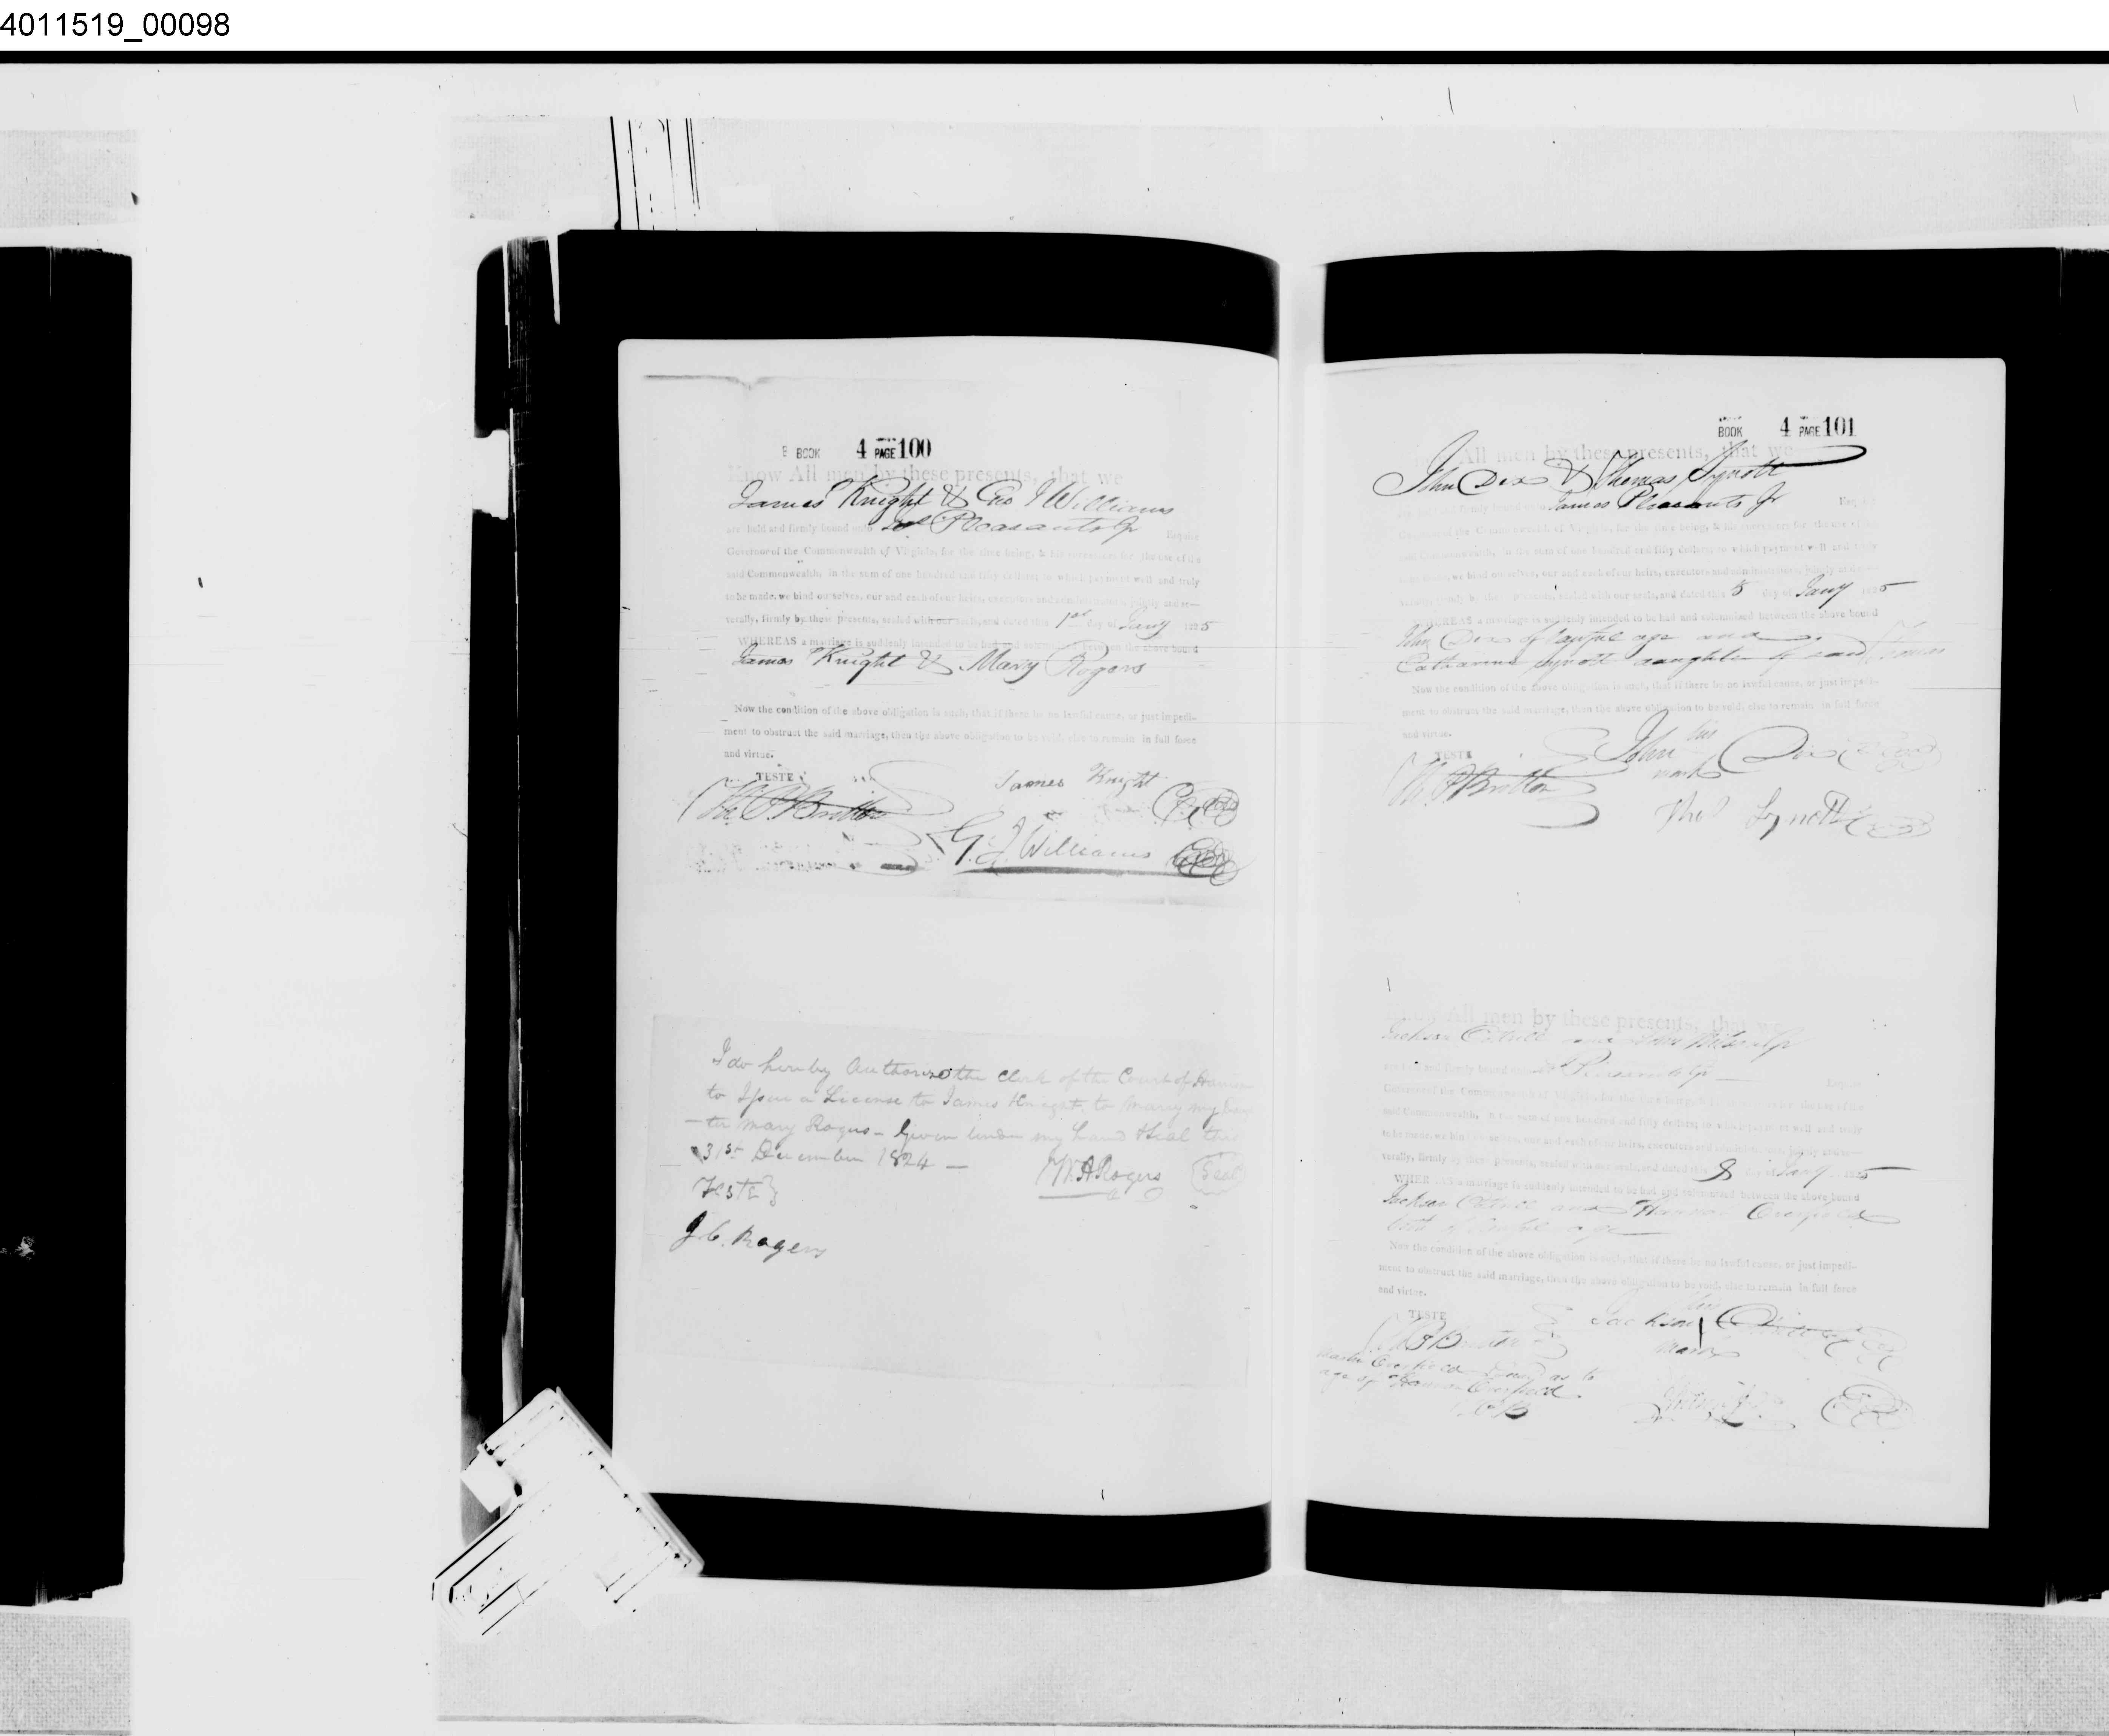 4011519_00098
BOOK 4 PAGE 100
Know All men by these presents, that we
James Knight & Geo I Williams
are held and firmly bound unto Jas Pleasants Jr Esquire
Governor of the Commonwealth of Virginia, for the time being, & his successors for the use of the
said Commonwealth, in the sum of one hundred and fifty dollars; to which payment well and truly
to be made, we bind ourselves, our and each of our heirs, executors and administrators, jointly and se-
verally, firmly by these presents, sealed with our seals, and dated this 1st day of Jany 1825
WHEREAS a marriage is suddenly intended to be had and solemnized between the above bound
James Knight & Mary Rogers
Now the condition of the above obligation is such, that if there be no lawful cause, or just impedi-
ment to obstruct the said marriage, then the above obligation to be void, else to remain in full force
and virtue.
TESTE
James Knight
G. I. Williams
I do hereby Authorize the Clerk of the Court of
to Issue a License to James Knight to Marry my
-ter Mary Rogers - Given under my hand & seal this
31st December 1824 -
Wm A Rogers Seal
Teste
J C. Rogers
BOOK 4 PAGE 101
Know All men by these presents, that we
John Dix & Thomas Synott
are held and firmly bound unto James Pleasants Jr Esquire
Governor of the Commonwealth of Virginia, for the time being, & his successors for the use of the
said Commonwealth, in the sum of one hundred and fifty dollars; to which payment well and truly
to be made, we bind ourselves, our and each of our heirs, executors and administrators, jointly and se-
verally, firmly by these presents, sealed with our seals, and dated this 5 day of Jany 1825
WHEREAS a marriage is suddenly intended to be had and solemnized between the above bound
John Dix of lawful age and
Catharine Synott daughter of said Thomas
Now the condition of the above obligation is such, that if there be no lawful cause, or just impedi-
ment to obstruct the said marriage, then the above obligation to be void, else to remain in full force
and virtue.
TESTE
John his Dix
mark
Thos Synott
Know All men by these presents, that we
Jackson
are held and firmly bound unto Jas Pleasants Jr Esquire
Governor of the Commonwealth of Virginia, for the time being, & his successors for the use of the
said Commonwealth, in the sum of one hundred and fifty dollars; to which payment well and truly
to be made, we bind ourselves, our and each of our heirs, executors and administrators, jointly and se-
verally, firmly by these presents, sealed with our seals, and dated this 8 day of Jany 1825
WHEREAS a marriage is suddenly intended to be had and solemnized between the above bound
Jackson and
both of lawful age
Now the condition of the above obligation is such, that if there be no lawful cause, or just impedi-
ment to obstruct the said marriage, then the above obligation to be void, else to remain in full force
and virtue.
TESTE
his
Jackson
mark
as to
age of